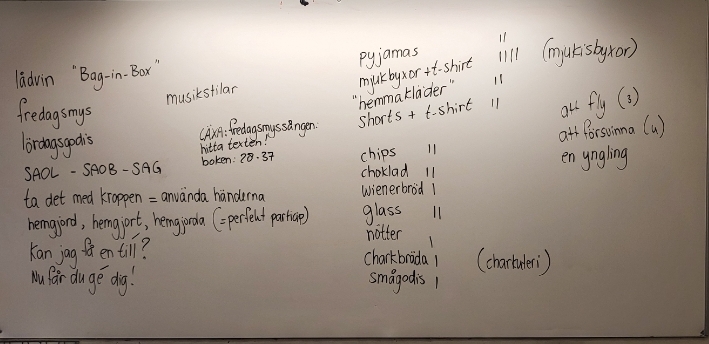 lådvin "Bag-in-Box"
musikstilar
fredagsmys
lördagsgodis
LÄXA: fredagsmyssången:
hitta texten!
boken: 28-37
SAOL - SAOB - SAG
ta det med kroppen = använda händerna
hemgjord, hemgjort, hemgjorda (=perfekt particip)
Kan jag få en till?
Nu får du gé dig!
pyjamas II
mjukbyxor + t-shirt IIII (mjukisbyxor)
"hemmakläder" II
shorts + t-shirt II
chips II
choklad II
wienerbröd I
glass II
nötter I
charkbräda I (charkuteri)
smågodis I
att fly (3)
att försvinna (4)
en yngling